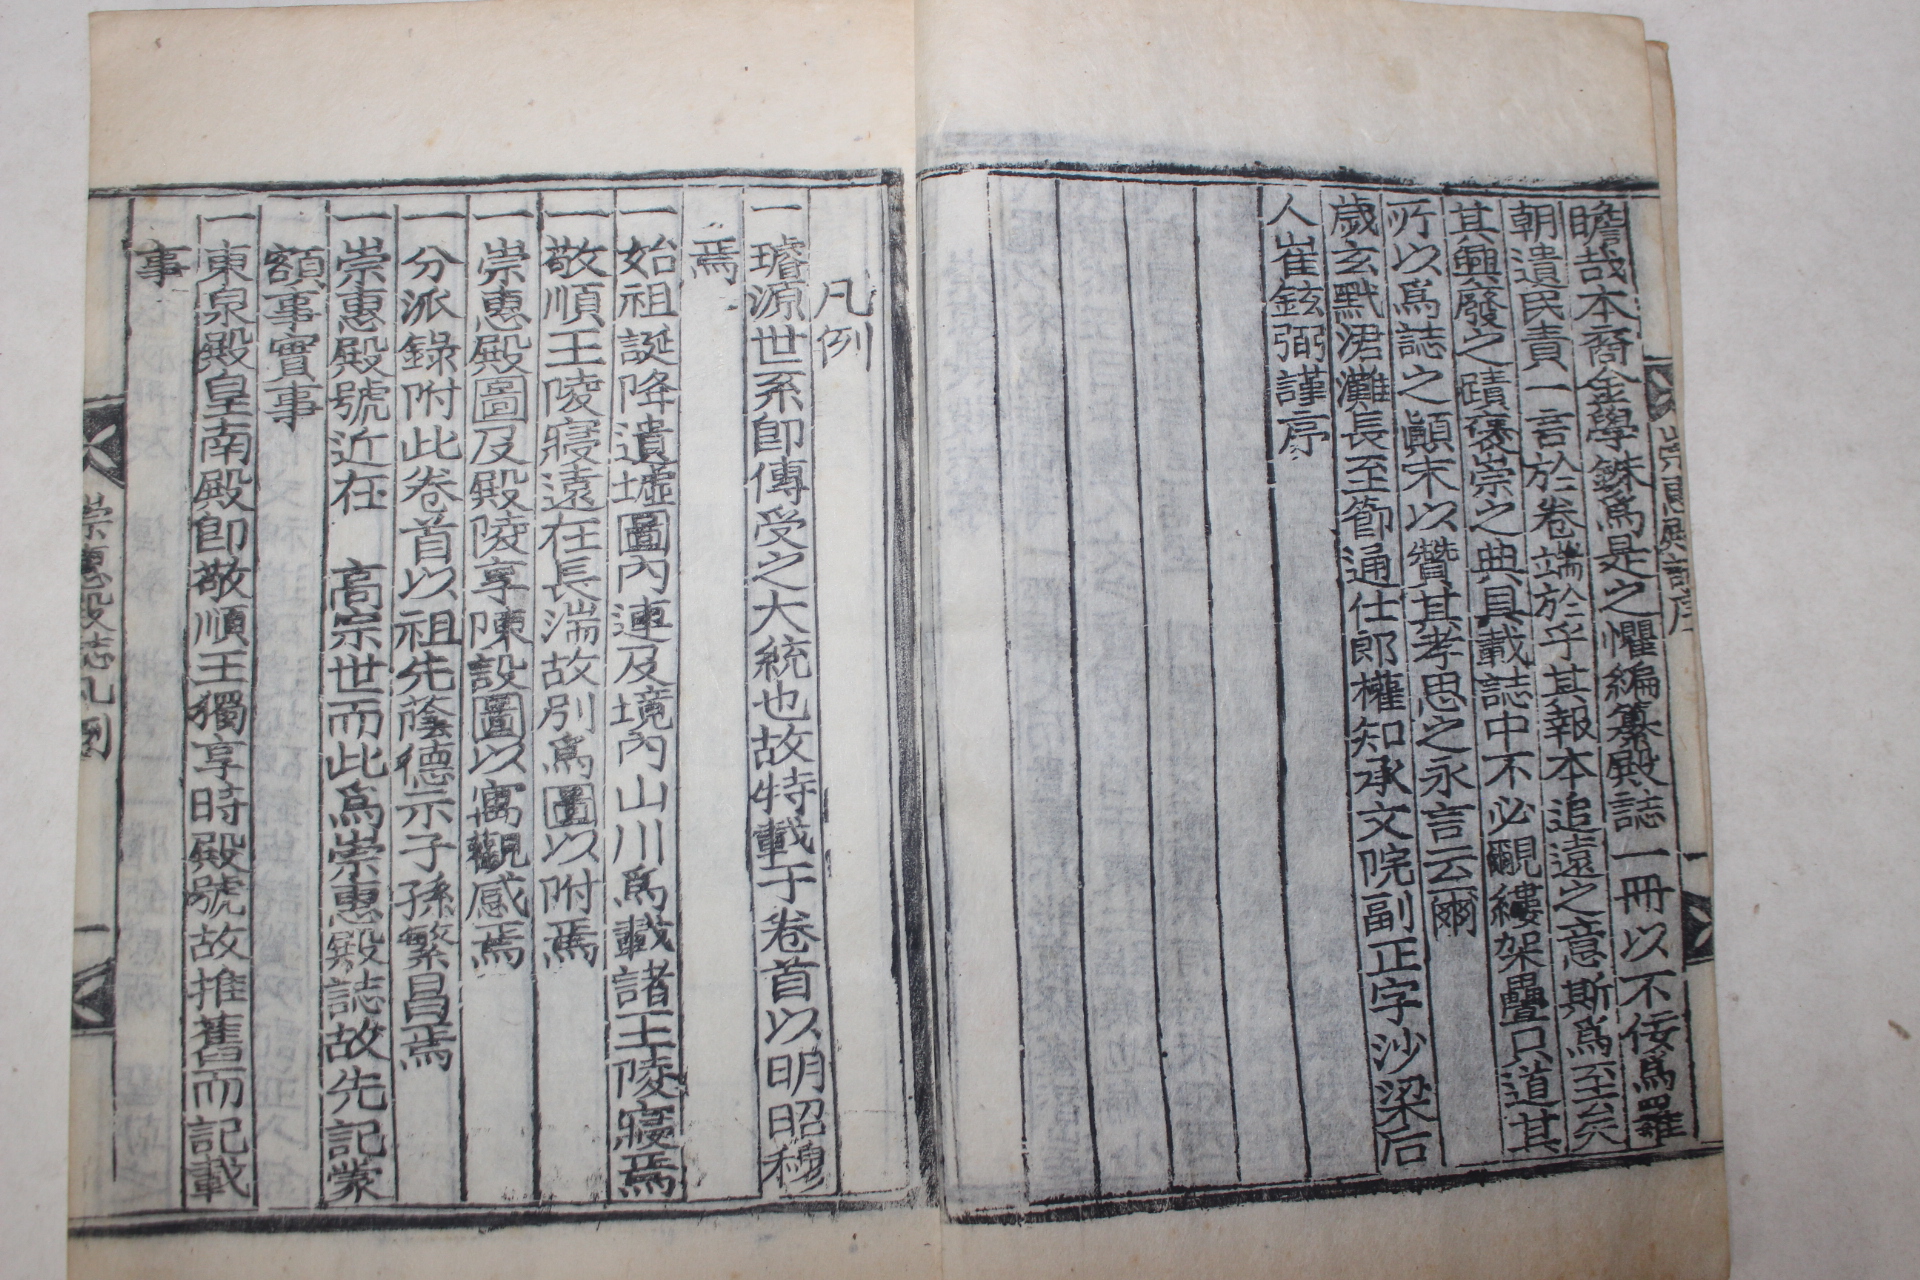 崇惠殿誌序
瞻哉本裔金學銖爲是之懼編纂殿誌一冊以不佞爲羅
朝遺民責一言於卷端於乎其報本追遠之意斯爲至矣
其興發之蹟褒崇之典具載誌中不必覼縷架疊只道其
所以爲誌之顚末以贊其孝思之永言云爾
歲玄黓涒灘長至節通仕郎權知承文院副正字沙梁后
人崔鉉弼謹序
凡例
一璿源世系卽傳受之大統也故特載于卷首以明昭穆
焉
一始祖誕降遺墟圖內連及境內山川爲載諸王陵寢焉
一敬順王陵寢遠在長湍故別爲圖以附焉
一崇惠殿圖及殿陵享陳設圖以寓觀感焉
一分派錄附此卷首以祖先蔭德示子孫繁昌焉
一崇惠殿號近在 高宗世而此爲崇惠殿誌故先記蒙
額事實事
一東泉殿皇南殿卽敬順王獨享時殿號故推舊而記載
事
崇惠殿誌凡例
一